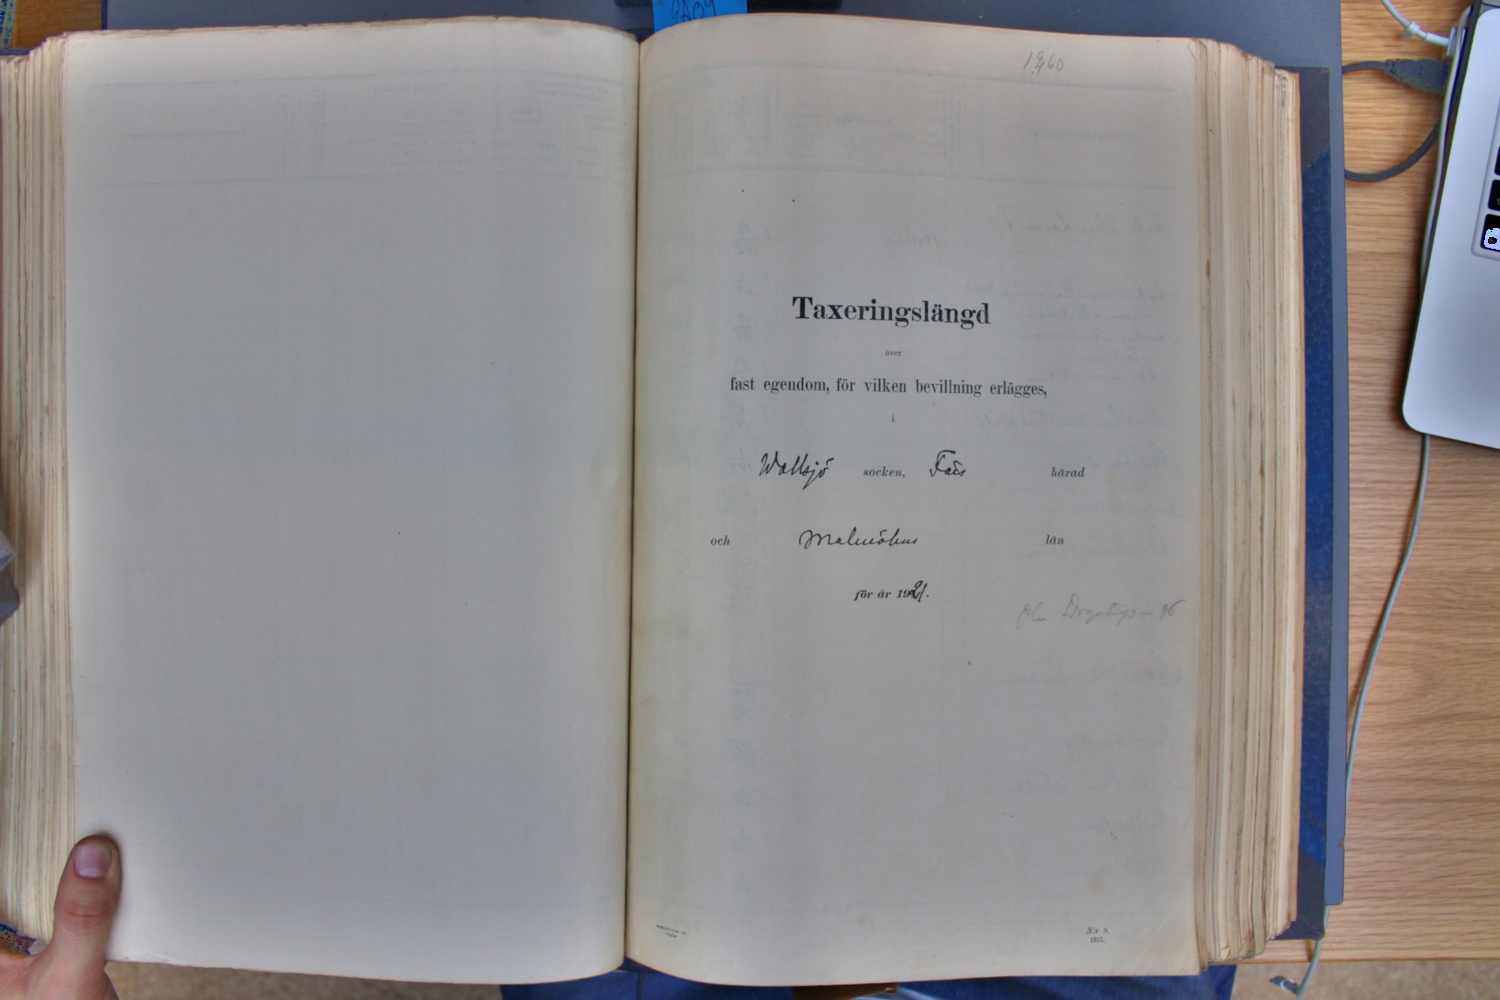 Taxeringslängd
över
fast egendom, för vilken bevillning erlägges,
i
Wollsjö socken, Färs härad
och Malmöhus län
för år 1921.
N:r 9.
1917.